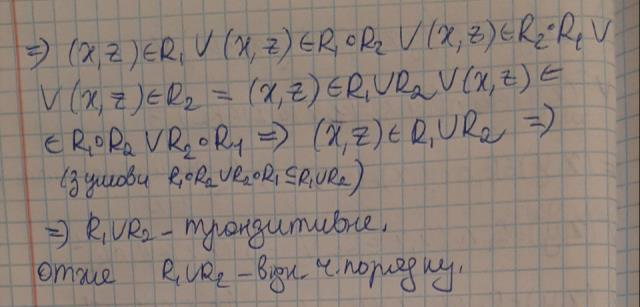 => (x,z)∈R₁ ∨ (x,z)∈R₁∘R₂ ∨ (x,z)∈R₂∘R₁ ∨
∨ (x,z)∈R₂ = (x,z)∈R₁∪R₂ ∨ (x,z)∈
∈R₁∘R₂ ∪ R₂∘R₁ => (x,z)∈R₁∪R₂ =>
(з умови R₁∘R₂∪R₂∘R₁⊆R₁∪R₂)
=> R₁∪R₂ – транзитивне.
Отже R₁∪R₂ – відн. ч. порядку.